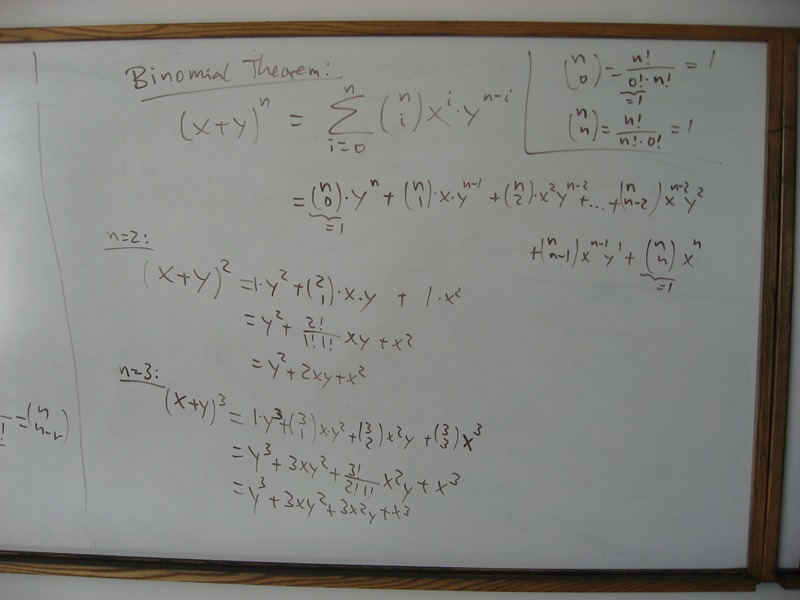 Binomial Theorem:
(x+y)^n = ∑_{i=0}^{n} (n i) x^i · y^{n-i}
(n 0) = n!/(0!·n!) = 1
=1
(n n) = n!/(n!·0!) = 1
= (n 0)·y^n + (n 1)·x·y^{n-1} + (n 2)·x^2 y^{n-2} + ... + (n n-2) x^{n-2} y^2
=1
+ (n n-1) x^{n-1} y^1 + (n n) x^n
=1
n=2:
(x+y)^2 = 1·y^2 + (2 1)·x·y + 1·x^2
= y^2 + 2!/(1!1!) xy + x^2
= y^2 + 2xy + x^2
n=3:
(x+y)^3 = 1·y^3 + (3 1) x·y^2 + (3 2) x^2 y + (3 3) x^3
= y^3 + 3xy^2 + 3!/(2!1!) x^2 y + x^3
= y^3 + 3xy^2 + 3x^2 y + x^3
! = (n n-r)